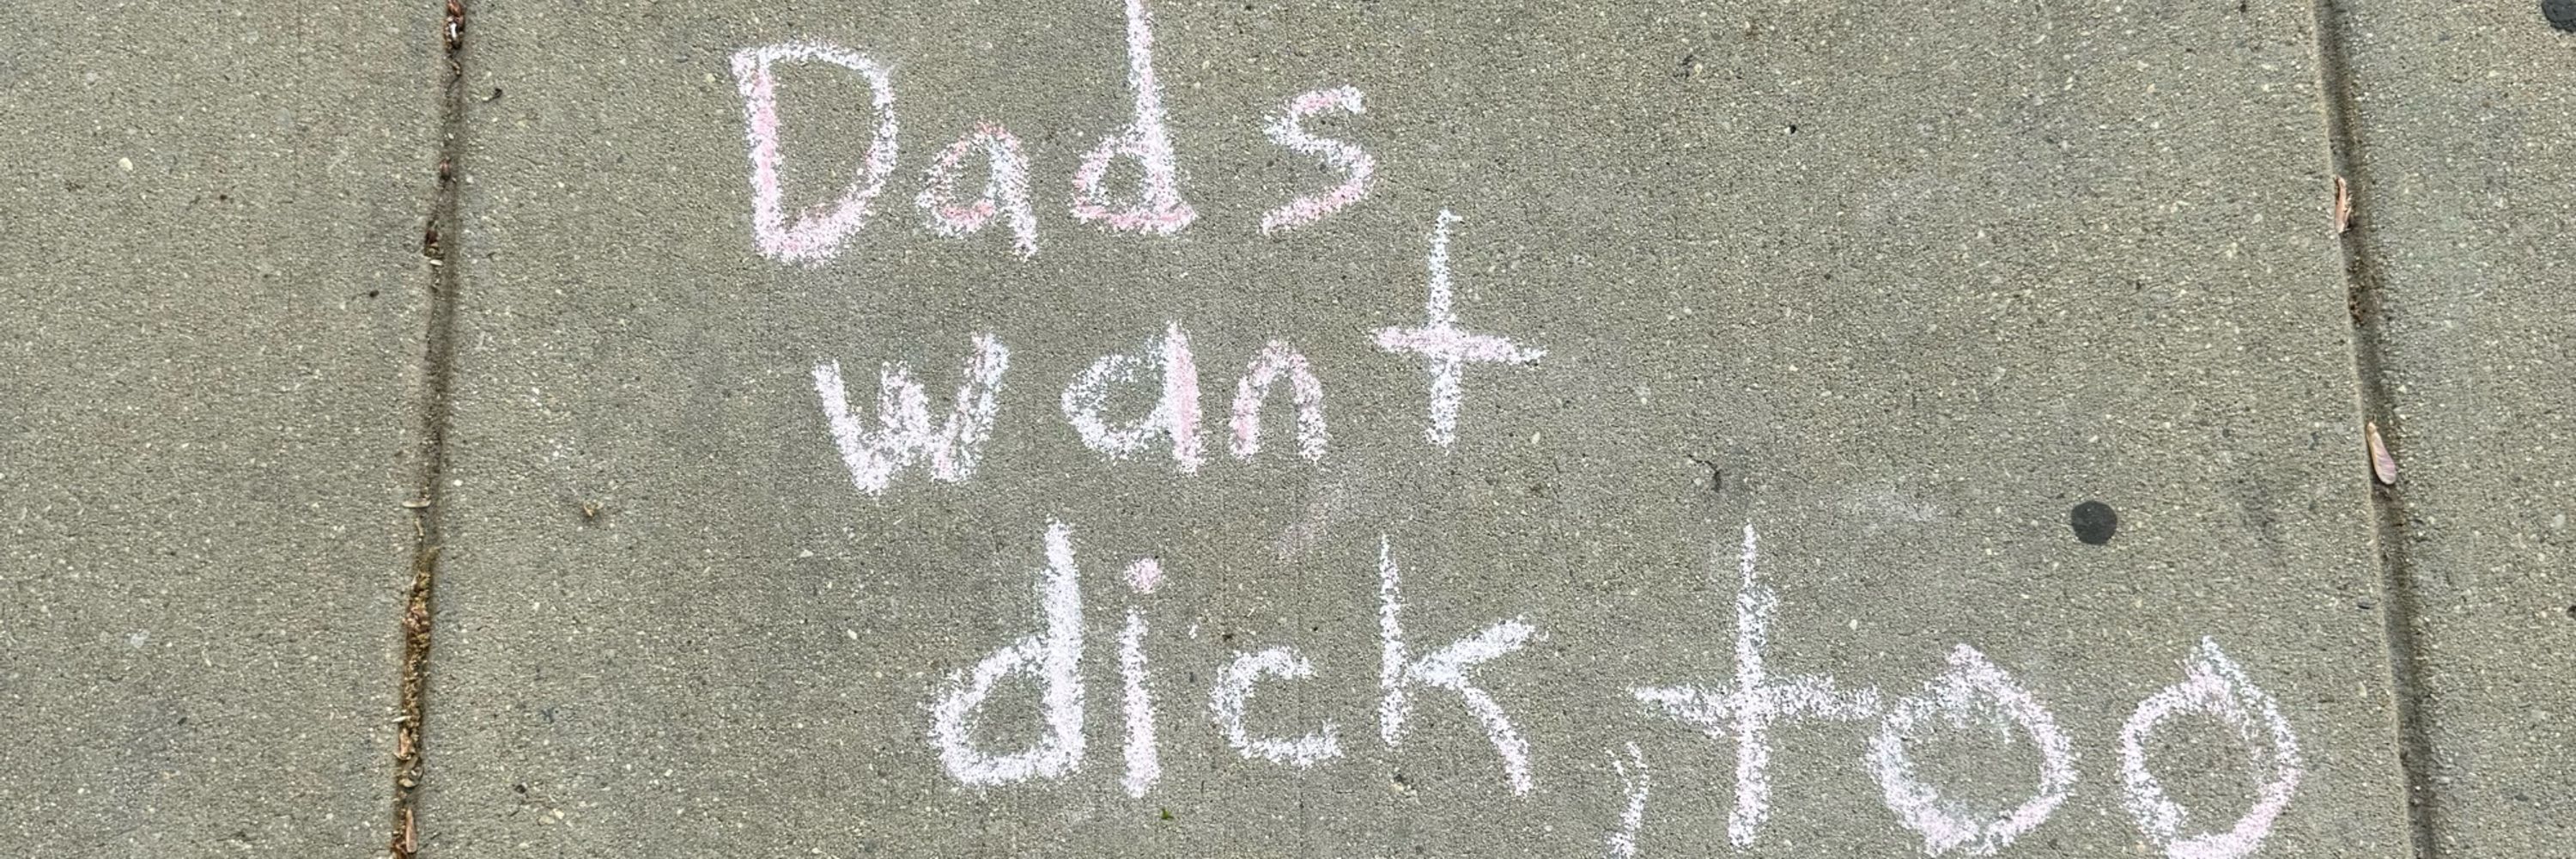 Dads
want
dick, too